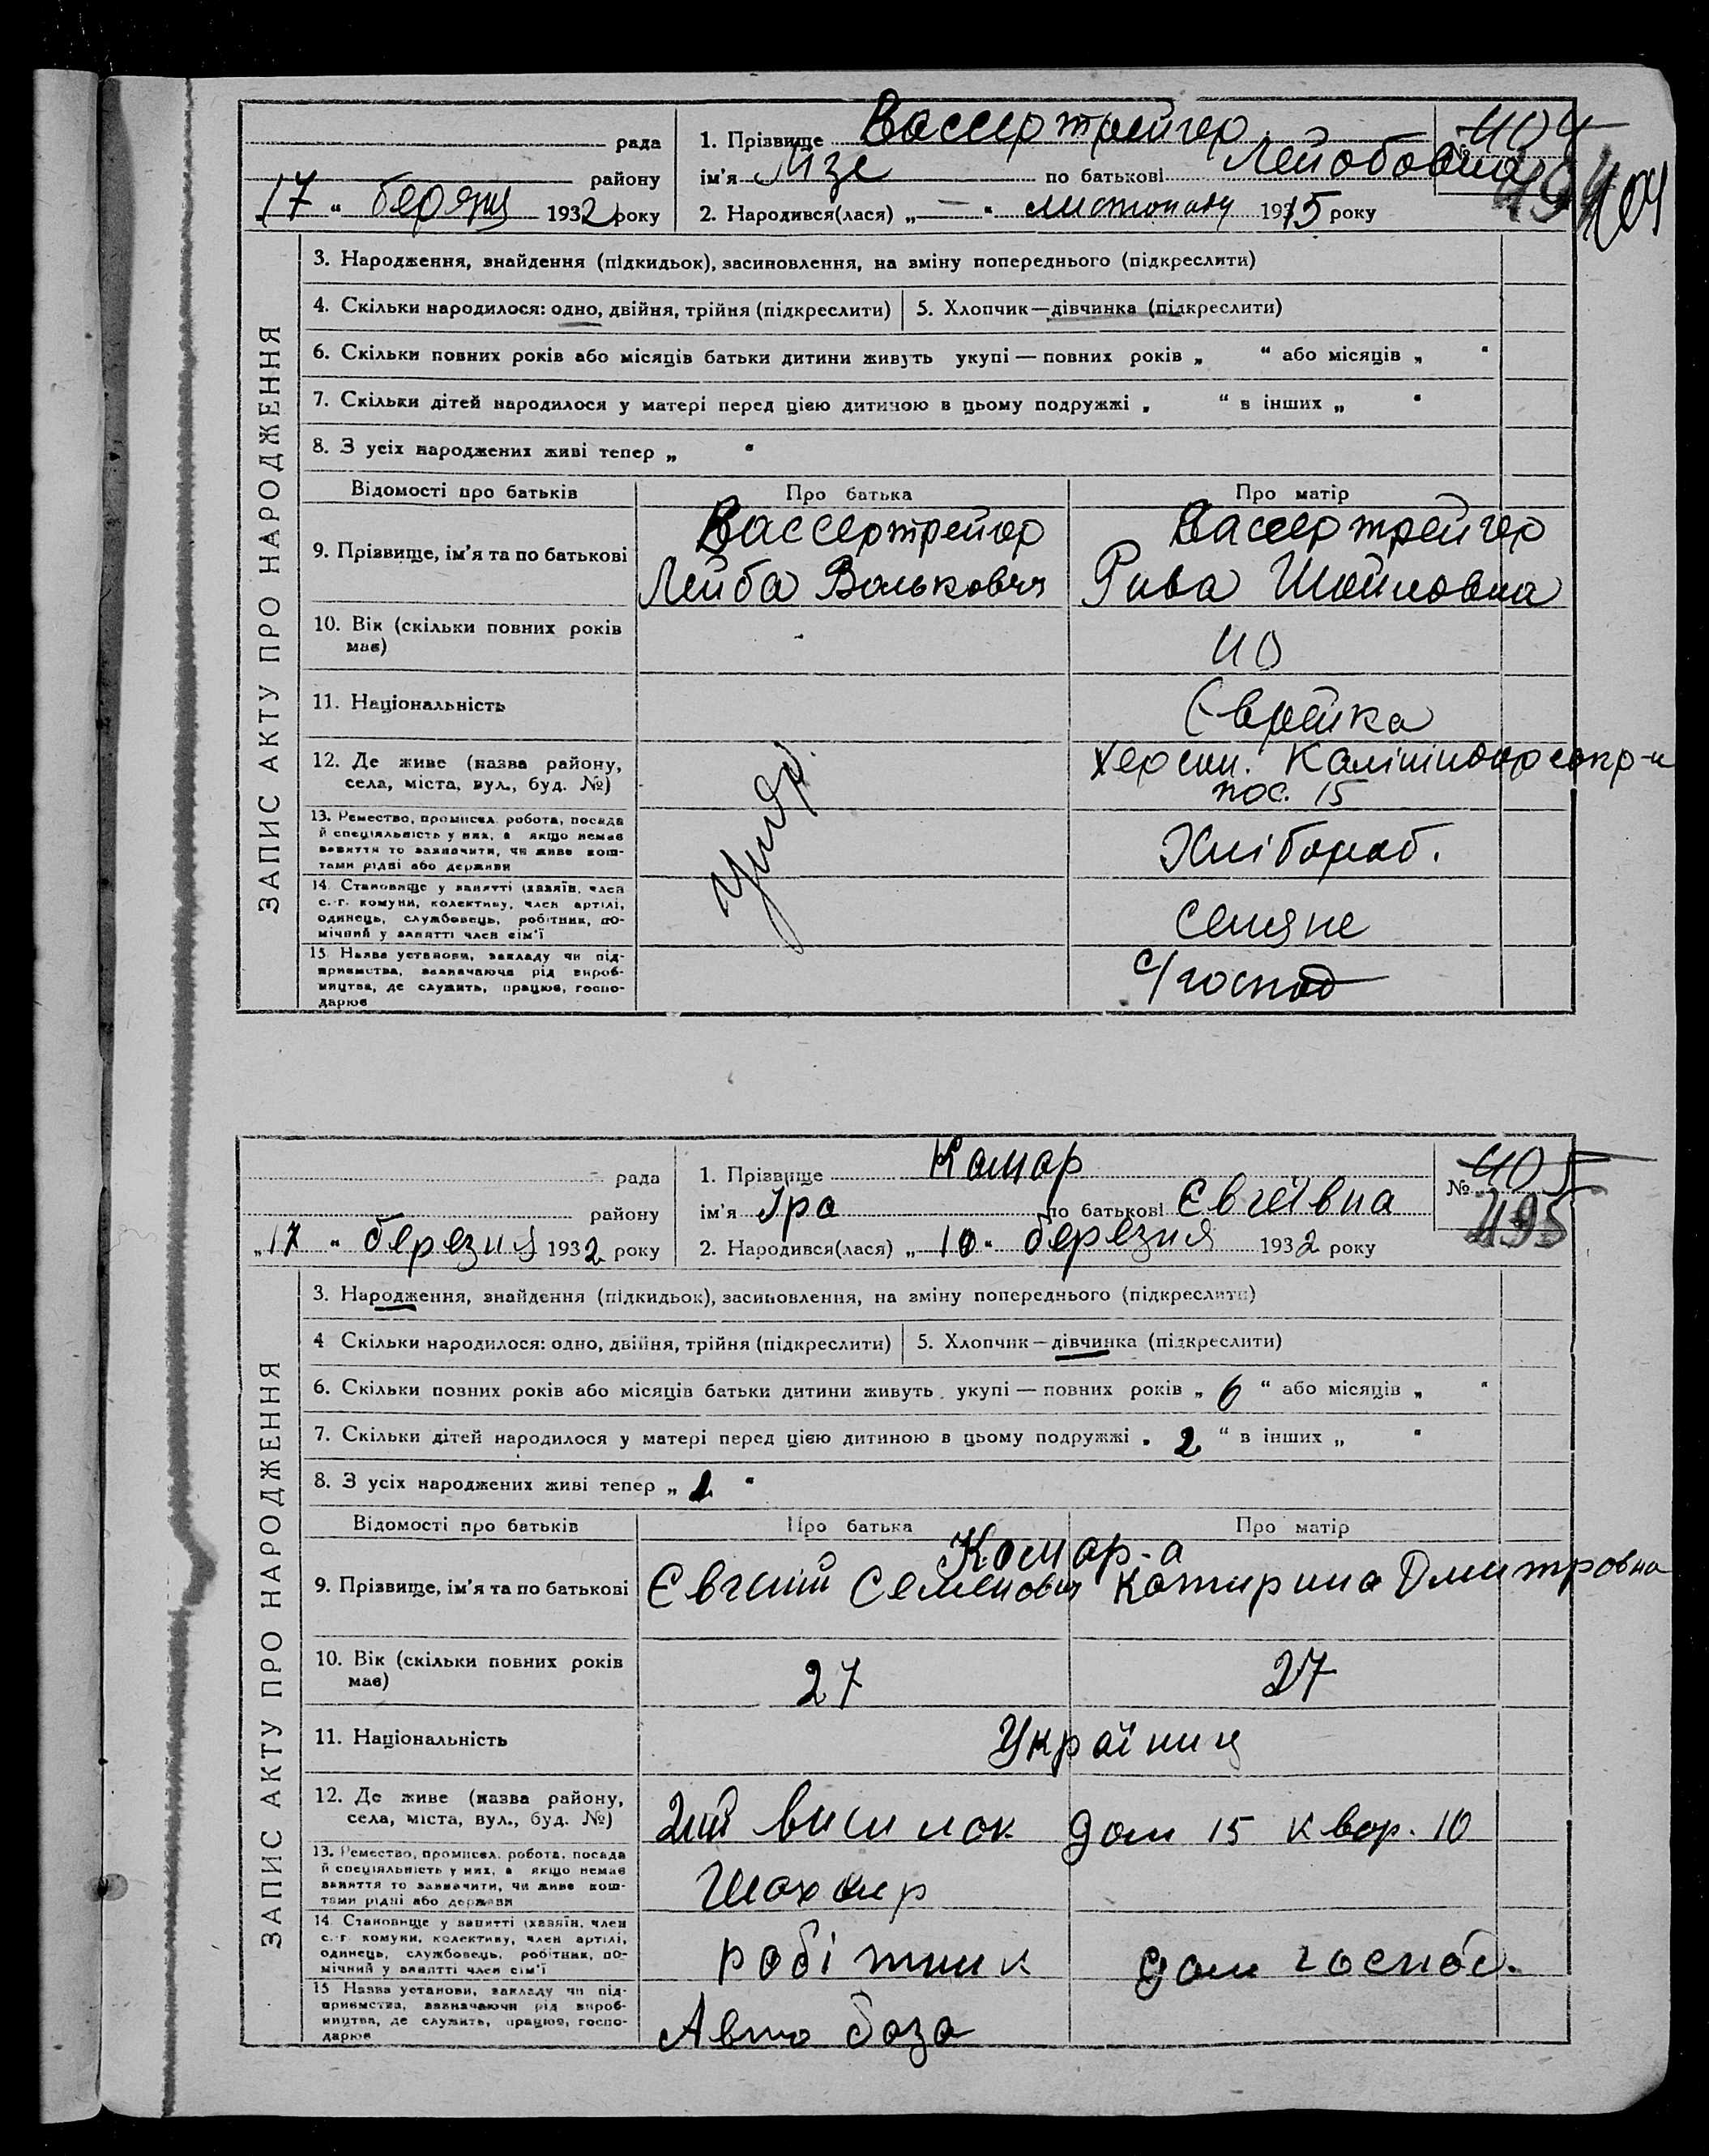 рада
району
17 " березня 1932 року
1. Прізвище Вассертрейгер
ім'я Мзе по батькові Лейбовна
2. Народився(лася) „ — " листопаду 1915 року
№ 404
494 404
ЗАПИС АКТУ ПРО НАРОДЖЕННЯ
3. Народження, знайдення (підкидьок), засиновлення, на зміну попереднього (підкреслити)
4. Скільки народилося: одно, двійня, трійня (підкреслити) 5. Хлопчик—дівчинка (підкреслити)
6. Скільки повних років або місяців батьки дитини живуть укупі — повних років „ " або місяців „ "
7. Скільки дітей народилося у матері перед цією дитиною в цьому подружжі „ " в інших „ "
8. З усіх народжених живі тепер „ "
Відомості про батьків Про батька Про матір
9. Прізвище, ім'я та по батькові
Вассертрейгер Вассертрейгер
Лейба Волькович Рива Шоймовна
10. Вік (скільки повних років має) 40
11. Національність Єврейка
12. Де живе (назва району, села, міста, вул., буд. №) Херсон. Калініндорському р-н
пос. 15
13. Ремество, промисел, робота, посада й спеціяльність у них, а якщо немає заняття то зазначити, чи живе коштами рідні або держави Хлібороб.
14. Становище у занятті (хазяїн, член с.-г. комуни, колективу, член артілі, одинець, службовець, робітник, помічний у занятті член сім'ї селяне
15. Назва установи, закладу чи підприємства, зазначаючи рід виробництва, де служить, працює, господарює с/господ
рада
району
„17 " березня 1932 року
1. Прізвище Комар
ім'я Іра по батькові Євгеївна
2. Народився(лася) „ 10 " березня 1932 року
№ 405
495
ЗАПИС АКТУ ПРО НАРОДЖЕННЯ
3. Народження, знайдення (підкидьок), засиновлення, на зміну попереднього (підкреслити)
4 Скільки народилося: одно, двійня, трійня (підкреслити) 5. Хлопчик—дівчинка (підкреслити)
6. Скільки повних років або місяців батьки дитини живуть укупі — повних років „ 6 " або місяців „ "
7. Скільки дітей народилося у матері перед цією дитиною в цьому подружжі „ 2 " в інших „ "
8. З усіх народжених живі тепер „ 1 "
Відомості про батьків Про батька Про матір
Комар-а
9. Прізвище, ім'я та по батькові Євгеній Семенович Катирина Дмитровна
10. Вік (скільки повних років має) 27 27
11. Національність Українці
12. Де живе (назва району, села, міста, вул., буд. №) 2ий висилок дом 15 квар. 10
13. Ремество, промисел, робота, посада й спеціяльність у них, а якщо немає заняття то зазначити, чи живе коштами рідні або держави
14. Становище у занятті (хазяїн, член с.-г. комуни, колективу, член артілі, одинець, службовець, робітник, помічний у занятті член сім'ї робітник дом господ.
15 Назва установи, закладу чи підприємства, зазначаючи рід виробництва, де служить, працює, господарює Авто база